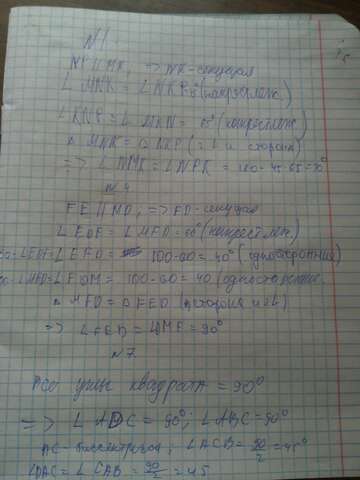 N1.
NP || MK, => NK - секущая
∠ MNK = ∠ NKP (накрестлеж.)
∠ KNP = ∠ MKN = (накрестлеж)
△ MNK = △ NKP (и сторона)
=> ∠ NMK = ∠ NPK =
N4
FE || MD, => FD - секущая
∠ EDF = ∠ MFD = 50° (накрест леж)
∠ EFD = 100-60 = 40° (односторонние)
∠ FDM = 100-60 = 40 (односторонние
△ MFD = △ FED (сторона и)
=> ∠ FED = = 90°
N7
Все углы квадрата = 90°
=> ∠ ADC = 90°; ∠ ABC = 90°
AC - биссектриса, ∠ ACB = 90/2 = 45°
∠DAC = ∠ CAB = 90/2 = 45